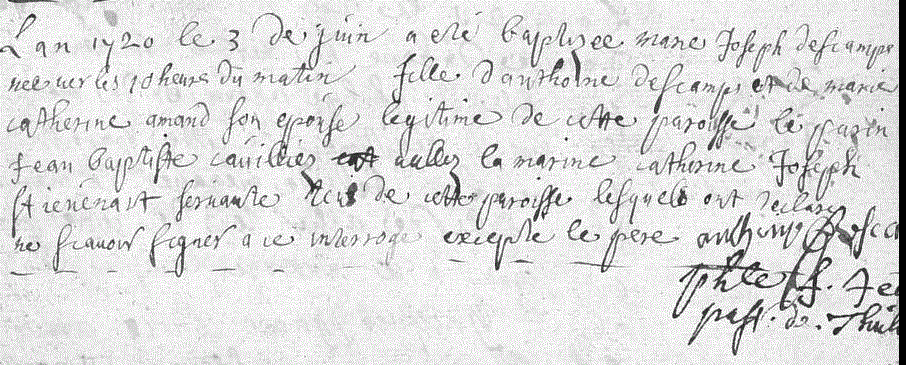 Lan 1720 le 3 de juin a eté baptizee marie Joseph descamps
neé vers les 10 heures du matin fille danthoine descamps et de marie
catherine amand son epouse legitime de cette paroisse le parin
Jean baptiste cauillies la marine catherine Joseph
stienenart servante de cette paroisse lesquels ont declare
ne scavoir signer a ce interrogé excepté le pere anthoine Desca
phle f.
past. de. Thul